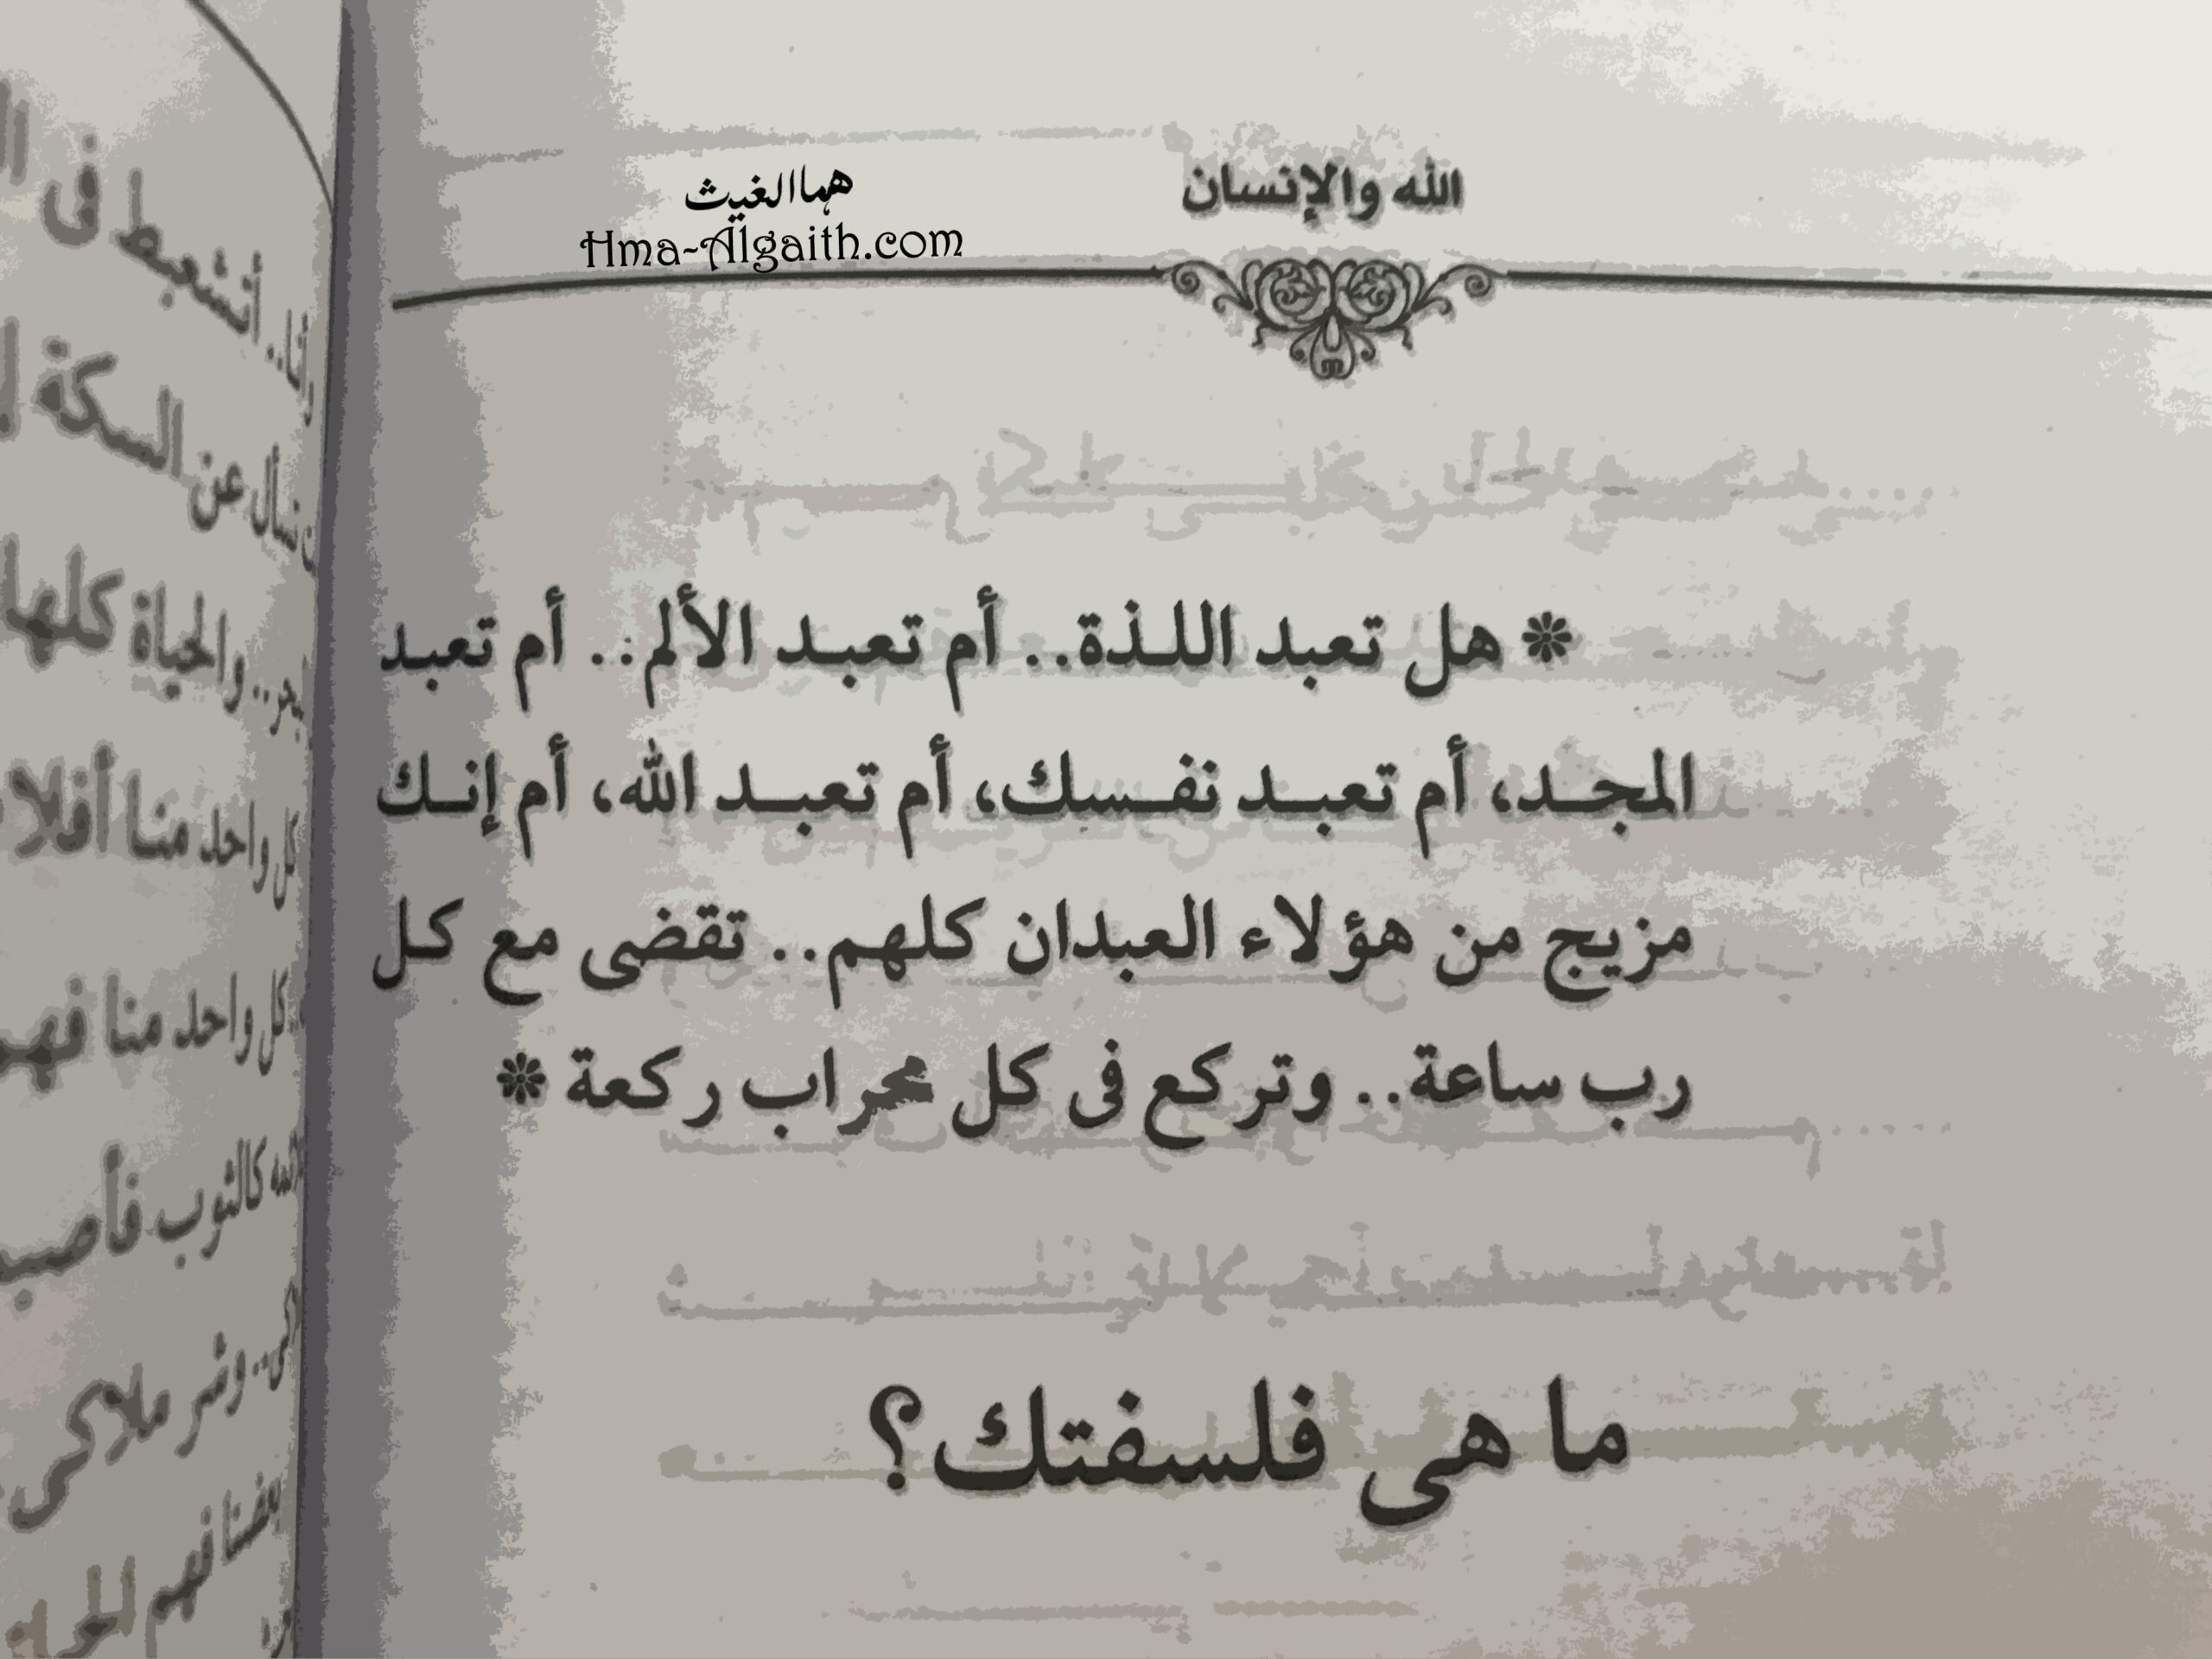 الله والإنسان
هما الغيث
Hma-Algaith.com
* هل تعبد اللذة.. أم تعبد الألم.. أم تعبد
المجد، أم تعبد نفسك، أم تعبد الله، أم إنك
مزيج من هؤلاء العبدان كلهم.. تقضى مع كل
رب ساعة.. وتركع فى كل محراب ركعة *
ما هى فلسفتك؟
أتشعبط فى
نسأل عن السكة
.. والحياة كلها
كل واحد منا أفلا
كل واحد منا فهم
الله كالثوب فأصب
.. وشر ملاكى
بعضنا فهم